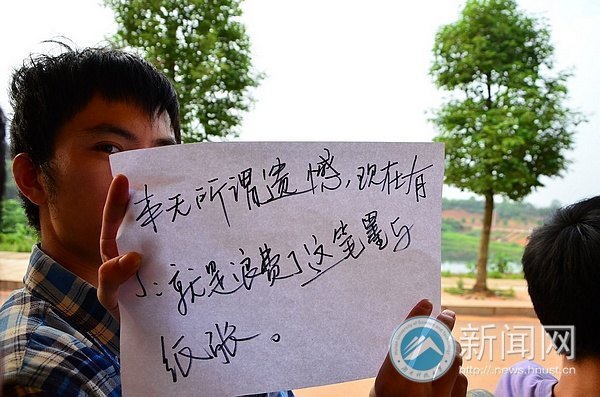 本无所谓遗憾，现在有
了：就是浪费了这笔墨与
纸张。
新闻网
http://news.hnust.cn